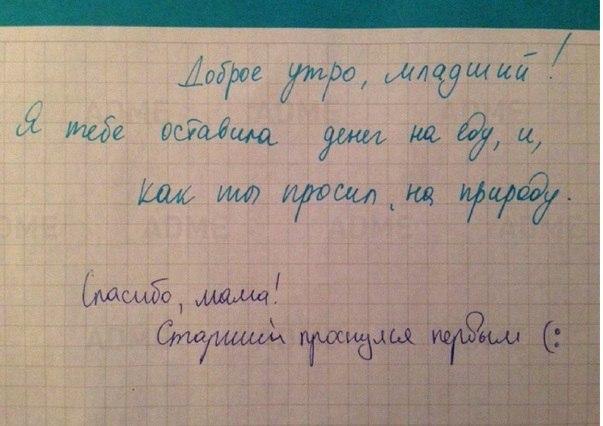 Доброе утро, младший!
Я тебе оставила денег на еду, и,
как ты просил, на природу.
Спасибо, мама!
Старший проснулся первым (: